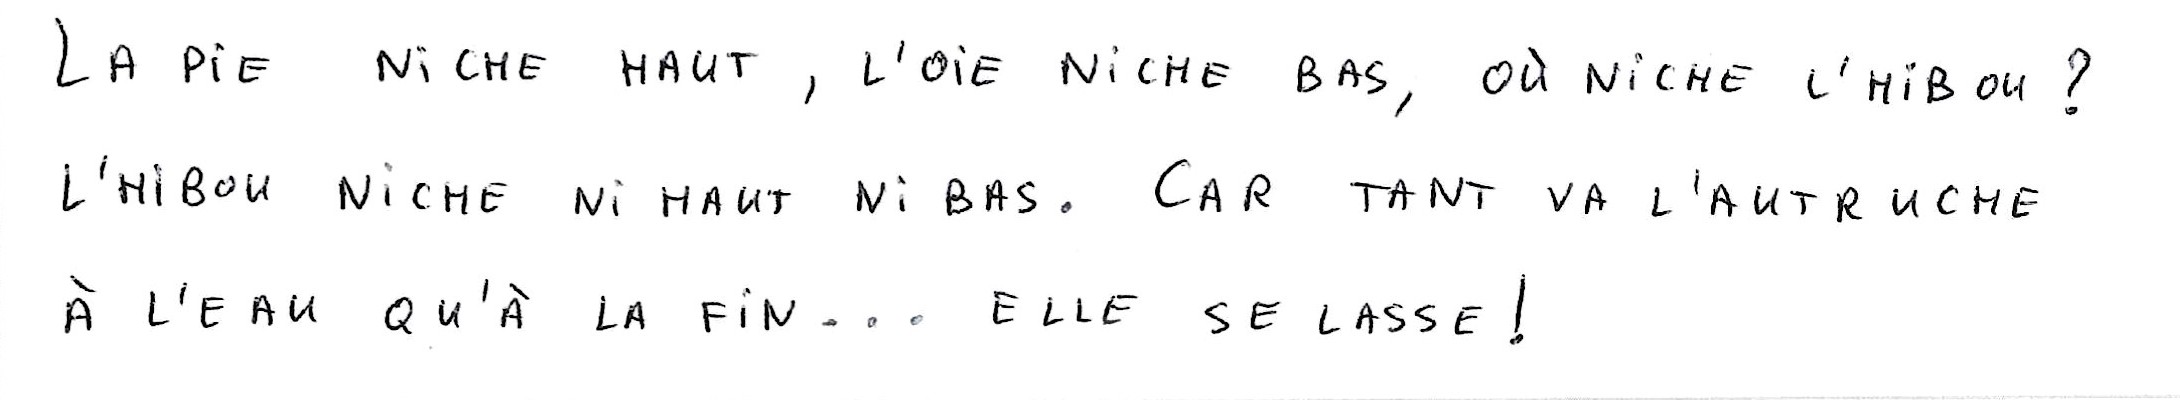 LA PiE NiCHE HAUT, L'OiE NiCHE BAS, OÙ NiCHE L'HiBOU ?
L'HiBOU NiCHE Ni HAUT Ni BAS. CAR TANT VA L'AUTRUCHE
À L'EAU QU'À LA FiN... ELLE SE LASSE !